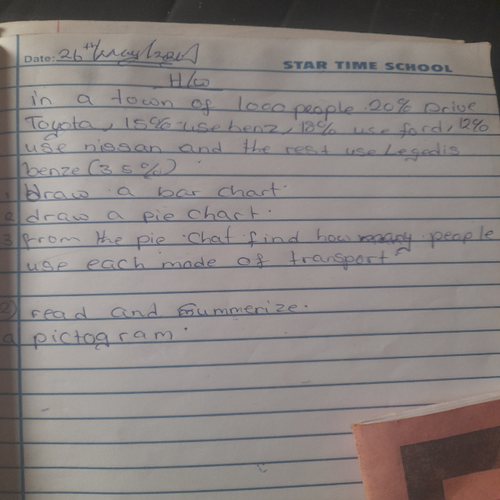 Date: 26th/May/2021
STAR TIME SCHOOL
H/w
in a town of 1000 people 20% Drive
Toyota, 15% use benz, 18% use ford, 12%
use nissan and the rest use Legedis
benze (35%)
1 Draw a bar chart.
2 draw a pie chart.
3 from the pie chat find how people
use each mode of transport
2) read and summerize.
a pictogram.